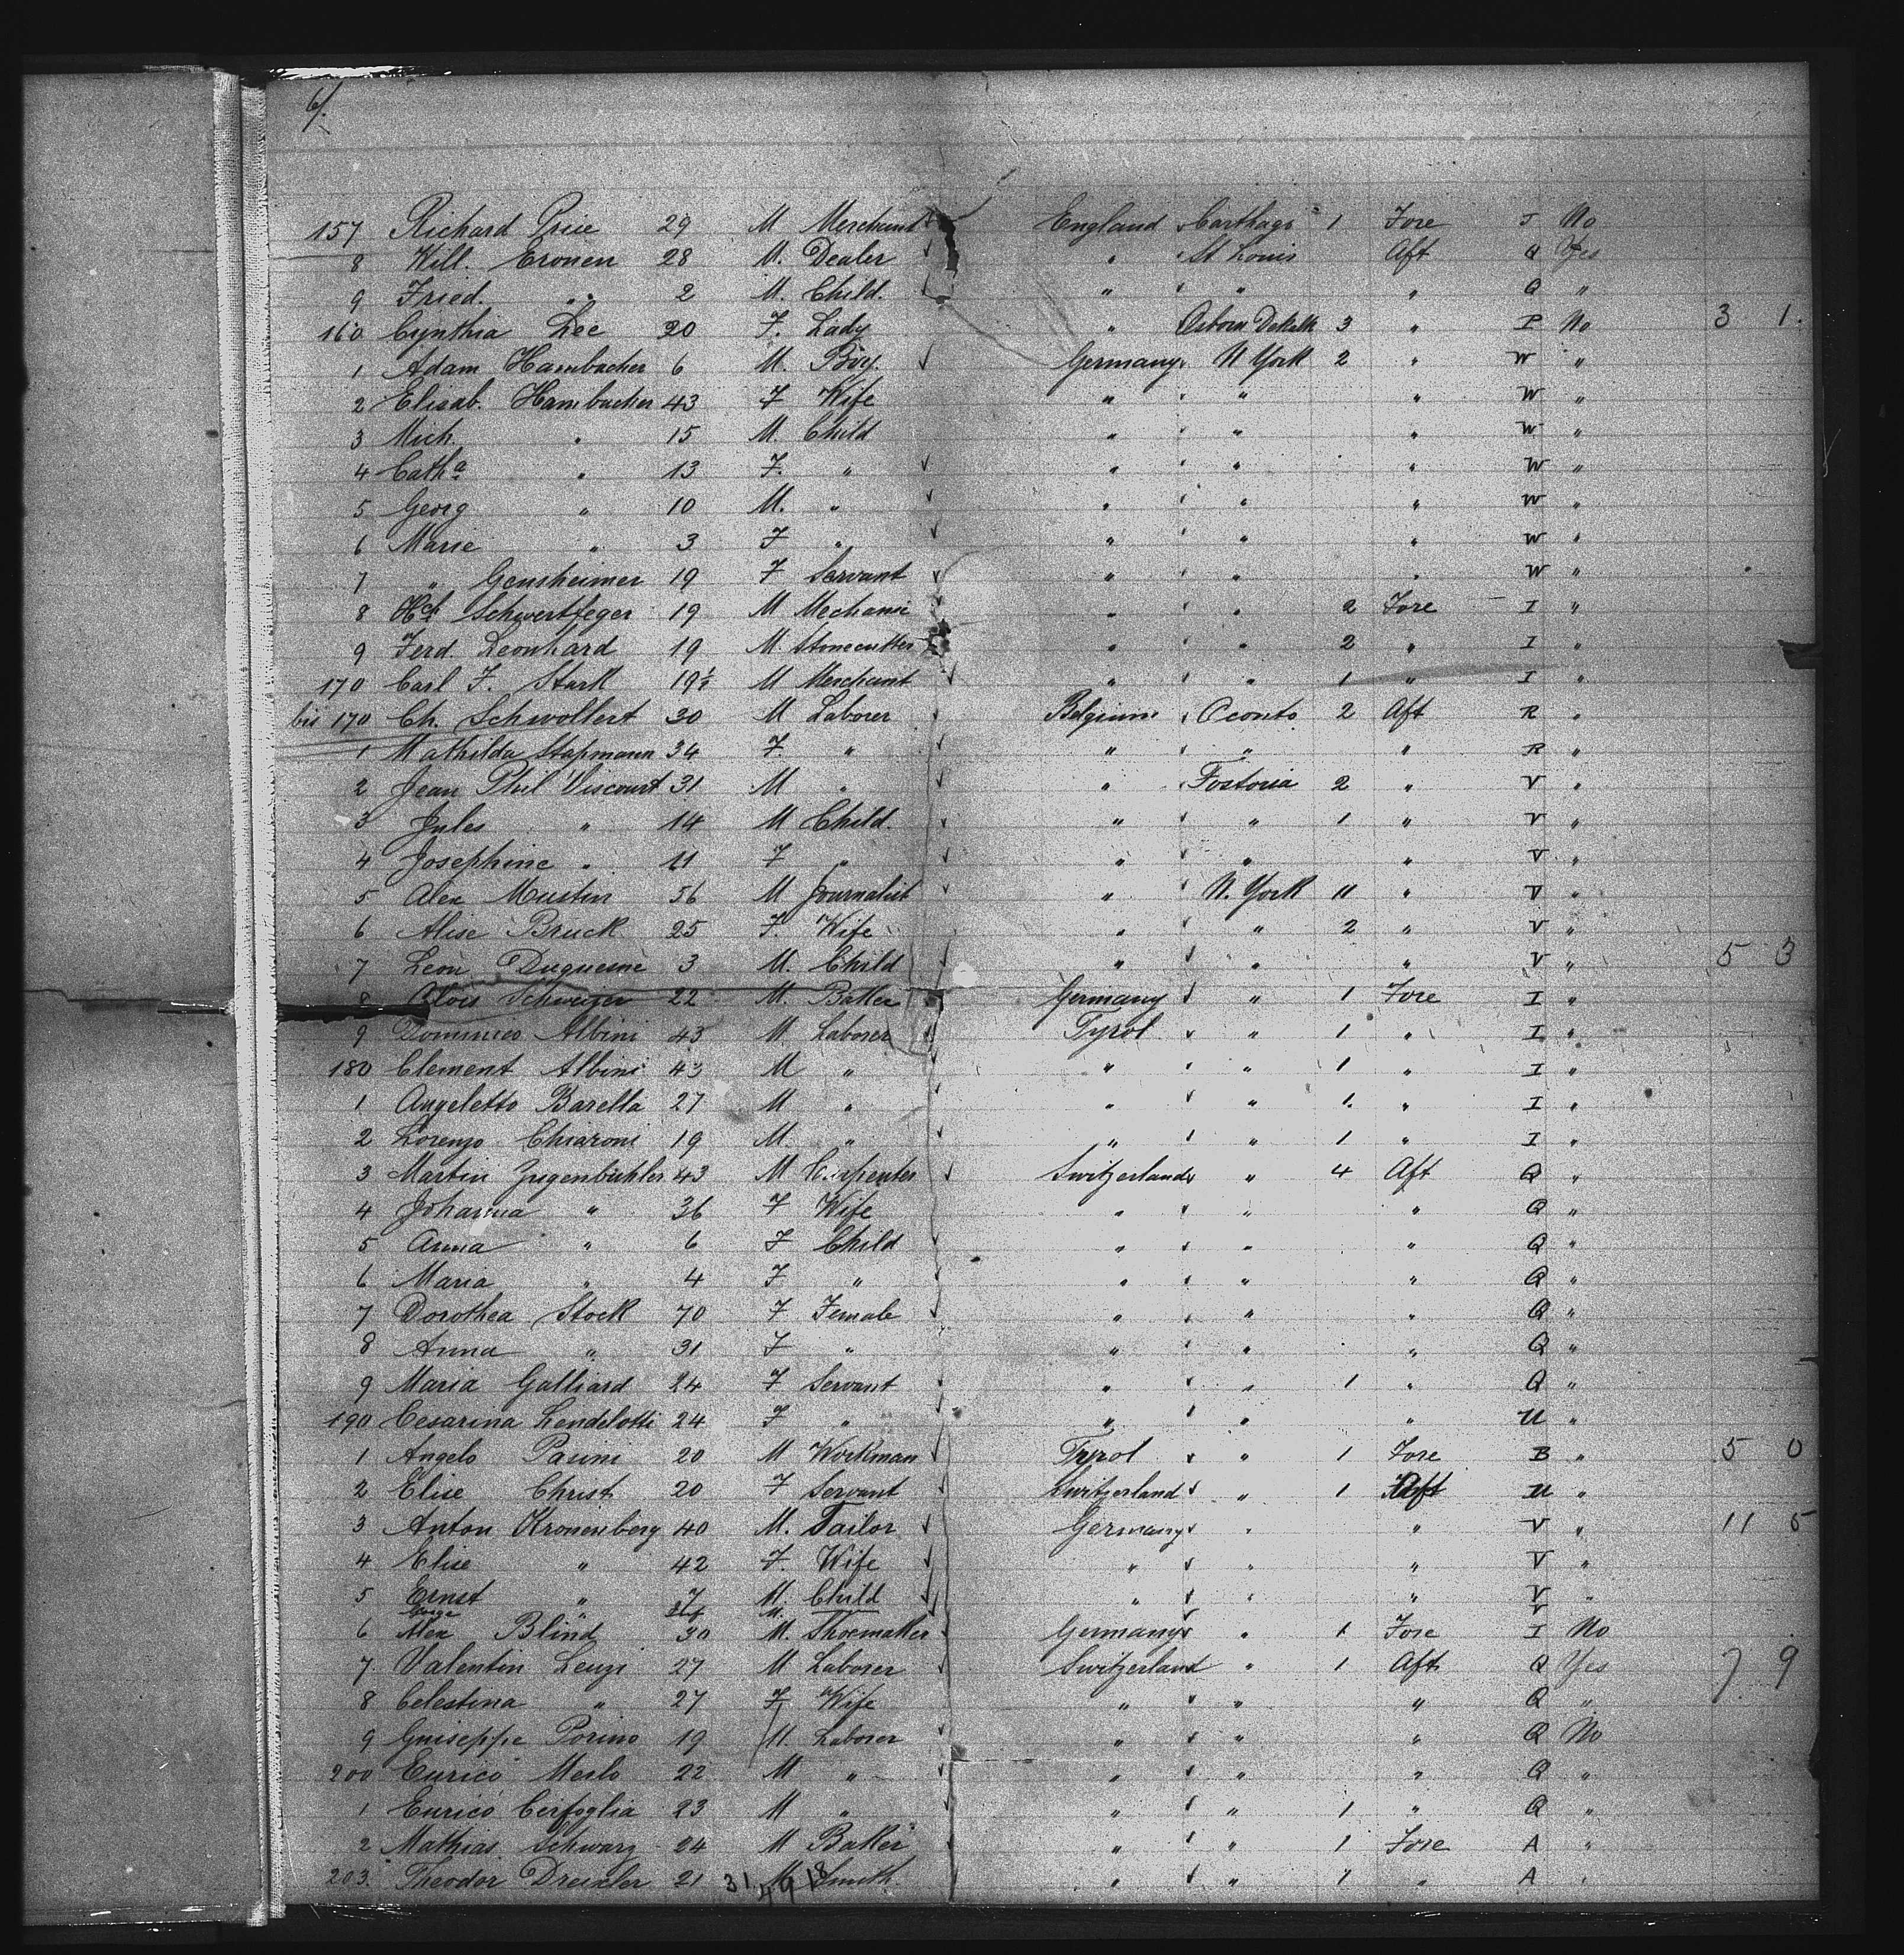 6/.
157 Richard Price 29 M Merchant England Carthage 1 Fore I No
8 Will. Cronen 28 M. Dealer " St Louis Aft Q Yes
9 Fried. " 2 M. Child. " " " Q "
160 Cynthia Lee 20 F. Lady " Osborn DeKalb 3 " P No 3 1.
1 Adam Hambacher 6 M. Boy. Germany N York 2 " W "
2 Elisab. Hambacher 43 F Wife " " " W "
3 Mich. " 15 M. Child " " " W "
4 Catha " 13 F. " " " " W "
5 Georg " 10 M. " " " " W "
6 Marie " 3 F " " " " W "
7 " Gensheimer 19 F Servant " " " W "
8 Hch Schwertfeger 19 M Mechanic " " 2 Fore I "
9 Ferd. Leonhard 19 M. Stonecutter " " 2 " I "
170 Carl F. Stark 19 M Merchant " " 1 " I "
bis 170 Ch. Schwollert 30 M Laborer Belgium Oconto 2 Aft R "
1 Mathilda Stapmann 34 F " " " " R "
2 Jean Phil Viscourt 31 M " " Fostoria 2 " V "
3 Jules " 14 M Child. " " 1 " V "
4 Josephine " 11 F " " " " V "
5 Alex Mustin 56 M Journalist " N. York 11 " V "
6 Alise Bruck 25 F. Wife " " 2 " V "
7 Leon Duquesne 3 M. Child " " " V " 5 3
8 Alois Schweizer 22 M. Baker Germany " 1 Fore I "
9 Dominico Albini 43 M Laborer Tyrol " 1 " I "
180 Clement Albini 43 M " " " 1 " I "
1 Angeletto Barella 27 M " " " 1 " I "
2 Lorenzo Chiaroni 19 M " " " 1 " I "
3 Martin Zugenbühler 43 M Carpenter Switzerland " 4 Aft Q "
4 Johanna " 36 F Wife " " " Q "
5 Anna " 6 F Child " " " Q "
6 Maria " 4 F " " " " Q "
7 Dorothea Stock 70 F Female " " " Q "
8 Anna " 31 F " " " " Q "
9 Maria Galliard 24 F Servant " " 1 " Q "
190 Cesarina Lendelotti 24 F " " " " U "
1 Angelo Pasini 20 M Workman Tyrol " 1 Fore B " 5 0
2 Elise Christ 20 F Servant Switzerland " 1 Aft U "
3 Anton Kronenberg 40 M. Tailor Germany " " V " 11 5
4 Elise " 42 F. Wife " " " V "
5 Ernst " 7 M. Child " " " V "
" M. V
6 Alex Blind 30 M. Shoemaker Germany " 1 Fore I No
7 Valentin Lenzi 27 M Laborer Switzerland " 1 Aft Q Yes 7 9
8 Celestina " 27 F Wife " " " Q "
9 Guiseppe Porino 19 M. Laborer " " " Q No
200 Enrico Merlo 22 M " " " " Q "
1 Enrico Cerfoglia 23 M " " " 1 " Q "
2 Mathias Schwarz 24 M Baker " " 1 Fore A "
203. Theodor Drexler 21 M Smith " " 1 " A "
31 49 18